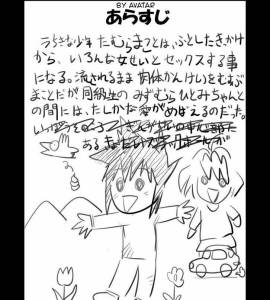 BY AVATAR
あらすじ
少年 たむらまことは、ふとしたきっかけ
から、いろんな女せいとセックスする事
になる。流されるまま肉体かんけいをむすぶ
まことだが同級生の みずむらひとみちゃんと
の間には、たしかな愛がめばえるのだった。